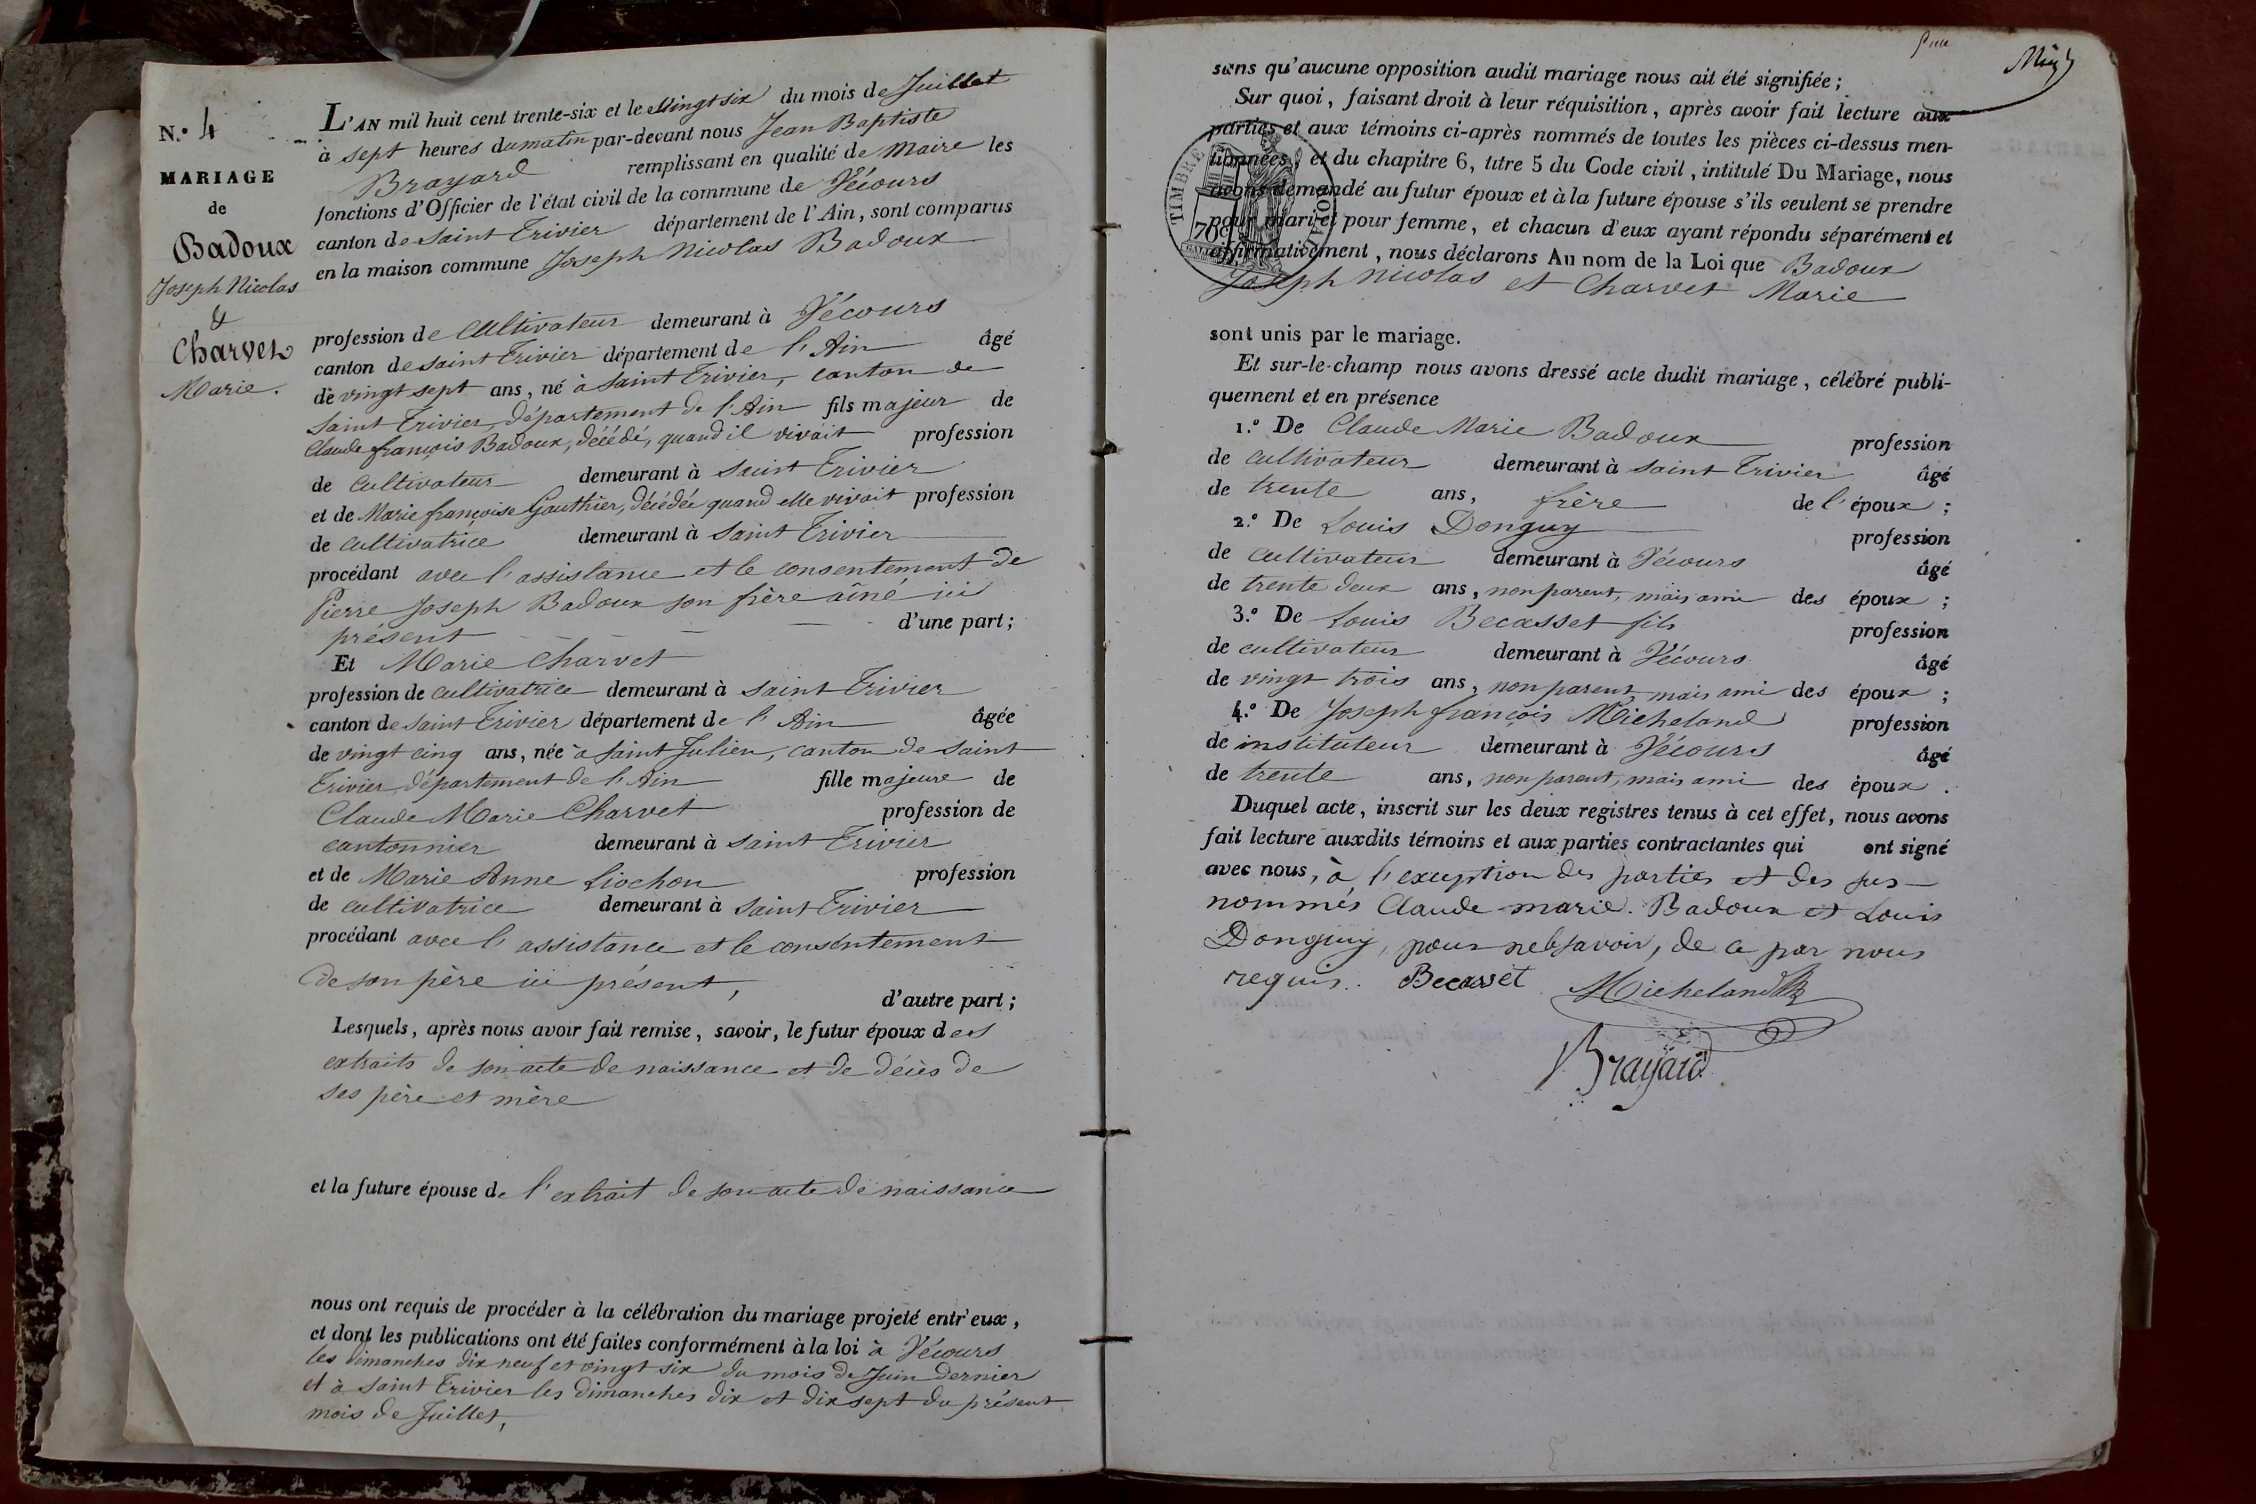 N.º 4
MARIAGE
de
Badoux
Joseph Nicolas
&
Charvet
Marie.
L'AN mil huit cent trente-six et le Vingt six du mois de Juillet
à sept heures du matin par-devant nous Jean Baptiste
Brayard remplissant en qualité de Maire les
fonctions d'Officier de l'état civil de la commune de Vécours
canton de Saint Trivier département de l'Ain, sont comparus
en la maison commune Joseph Nicolas Badoux
profession de Cultivateur demeurant à Vécours
canton de Saint Trivier département de l'Ain âgé
de vingt sept ans, né à Saint Trivier, canton de
Saint Trivier, département de l'Ain fils majeur de
Claude françois Badoux, décédé, quand il vivait profession
de Cultivateur demeurant à Saint Trivier
et de Marie françoise Gauthier, décédée quand elle vivait profession
de cultivatrice demeurant à Saint Trivier
procédant avec l'assistance et le consentement de
Pierre Joseph Badoux son frère aîné ici
présent d'une part;
Et Marie Charvet
profession de cultivatrice demeurant à Saint Trivier
canton de Saint Trivier département de l'Ain âgée
de vingt cinq ans, née à Saint Julien, canton de Saint
Trivier, département de l'Ain fille majeure de
Claude Marie Charvet profession de
cantonnier demeurant à Saint Trivier
et de Marie Anne Liochon profession
de cultivatrice demeurant à Saint Trivier
procédant avec l'assistance et le consentement
de son père ici présent, d'autre part;
Lesquels, après nous avoir fait remise, savoir, le futur époux des
extraits de son acte de naissance et de décès de
ses père et mère
et la future épouse de l'extrait de son acte de naissance
nous ont requis de procéder à la célébration du mariage projeté entr'eux,
et dont les publications ont été faites conformément à la loi à Vécours
les dimanches dix neuf et vingt six du mois de Juin dernier
et à Saint Trivier les dimanches dix et dix sept du présent
mois de Juillet,
sans qu'aucune opposition audit mariage nous ait été signifiée;
Sur quoi, faisant droit à leur réquisition, après avoir fait lecture aux
parties et aux témoins ci-après nommés de toutes les pièces ci-dessus men-
tionnées, et du chapitre 6, titre 5 du Code civil, intitulé Du Mariage, nous
avons demandé au futur époux et à la future épouse s'ils veulent se prendre
pour mari et pour femme, et chacun d'eux ayant répondu séparément et
affirmativement, nous déclarons Au nom de la Loi que Badoux
Joseph Nicolas et Charvet Marie
TIMBRE ROYAL
70
sont unis par le mariage.
Et sur-le-champ nous avons dressé acte dudit mariage, célébré publi-
quement et en présence
1.º De Claude Marie Badoux profession
de cultivateur demeurant à Saint Trivier âgé
de trente ans, frère de l'époux;
2.º De Louis Donguy profession
de cultivateur demeurant à Vécours âgé
de trente deux ans, non parent, mais ami des époux;
3.º De Louis Becasset fils profession
de cultivateur demeurant à Vécours âgé
de vingt trois ans, non parent, mais ami des époux;
4.º De Joseph françois Micheland profession
de instituteur demeurant à Vécours âgé
de trente ans, non parent, mais ami des époux.
Duquel acte, inscrit sur les deux registres tenus à cet effet, nous avons
fait lecture auxdits témoins et aux parties contractantes qui ont signé
avec nous, à l'exception des parties et des sus-
nommés Claude-marie Badoux et Louis
Donguy, pour ne le savoir, de ce par nous
requis. Becasset Micheland
Brayard